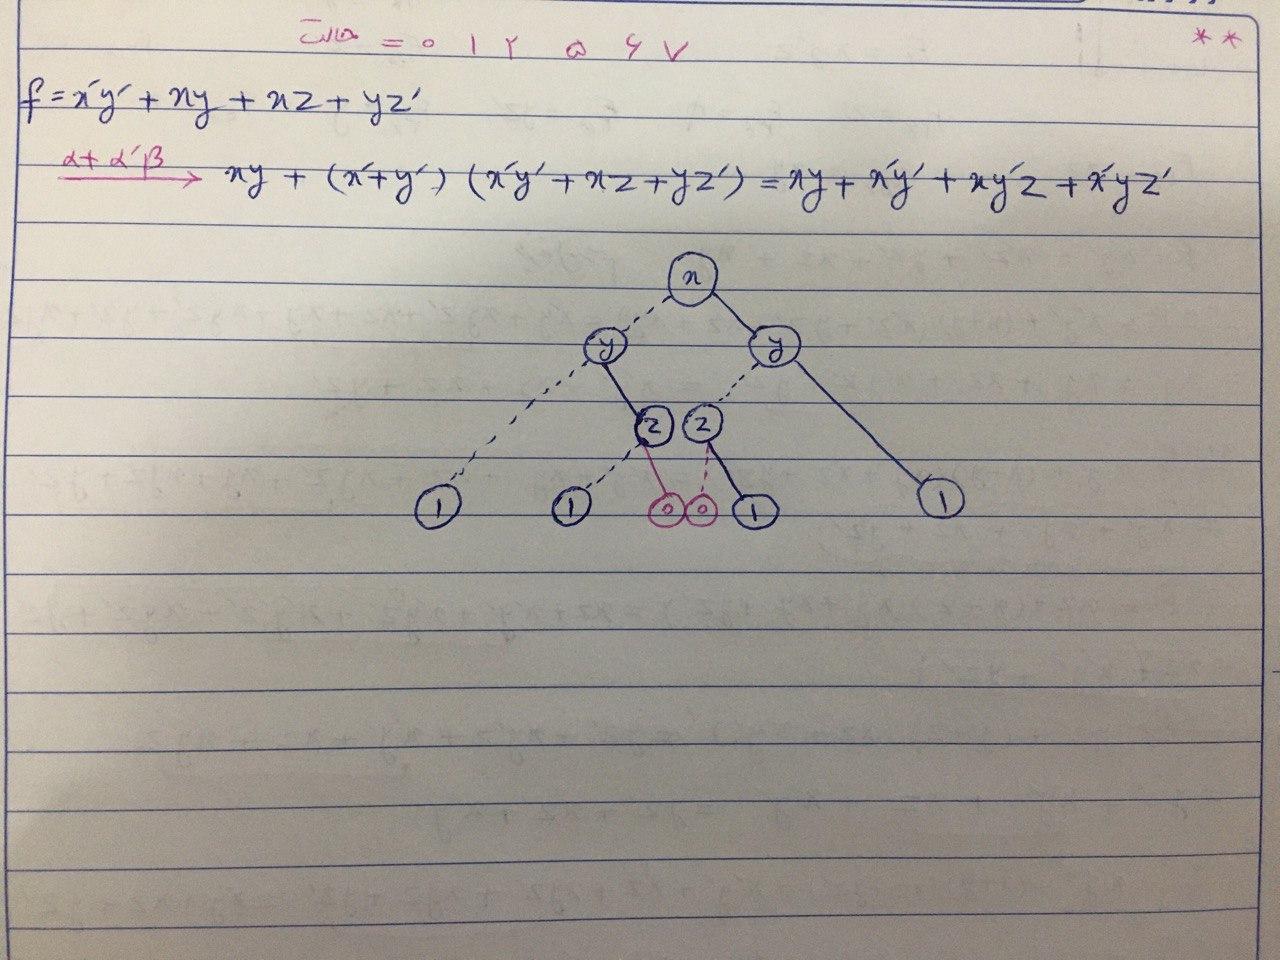 حالت = ۰ ۱ ۲ ۵ ۶ ۷ **
f = x'y' + xy + xz + yz'
α + α'β → xy + (x'+y') (x'y' + xz + yz') = xy + x'y' + xy'z + x'yz'
x
y y
z z
1 1 0 0 1 1